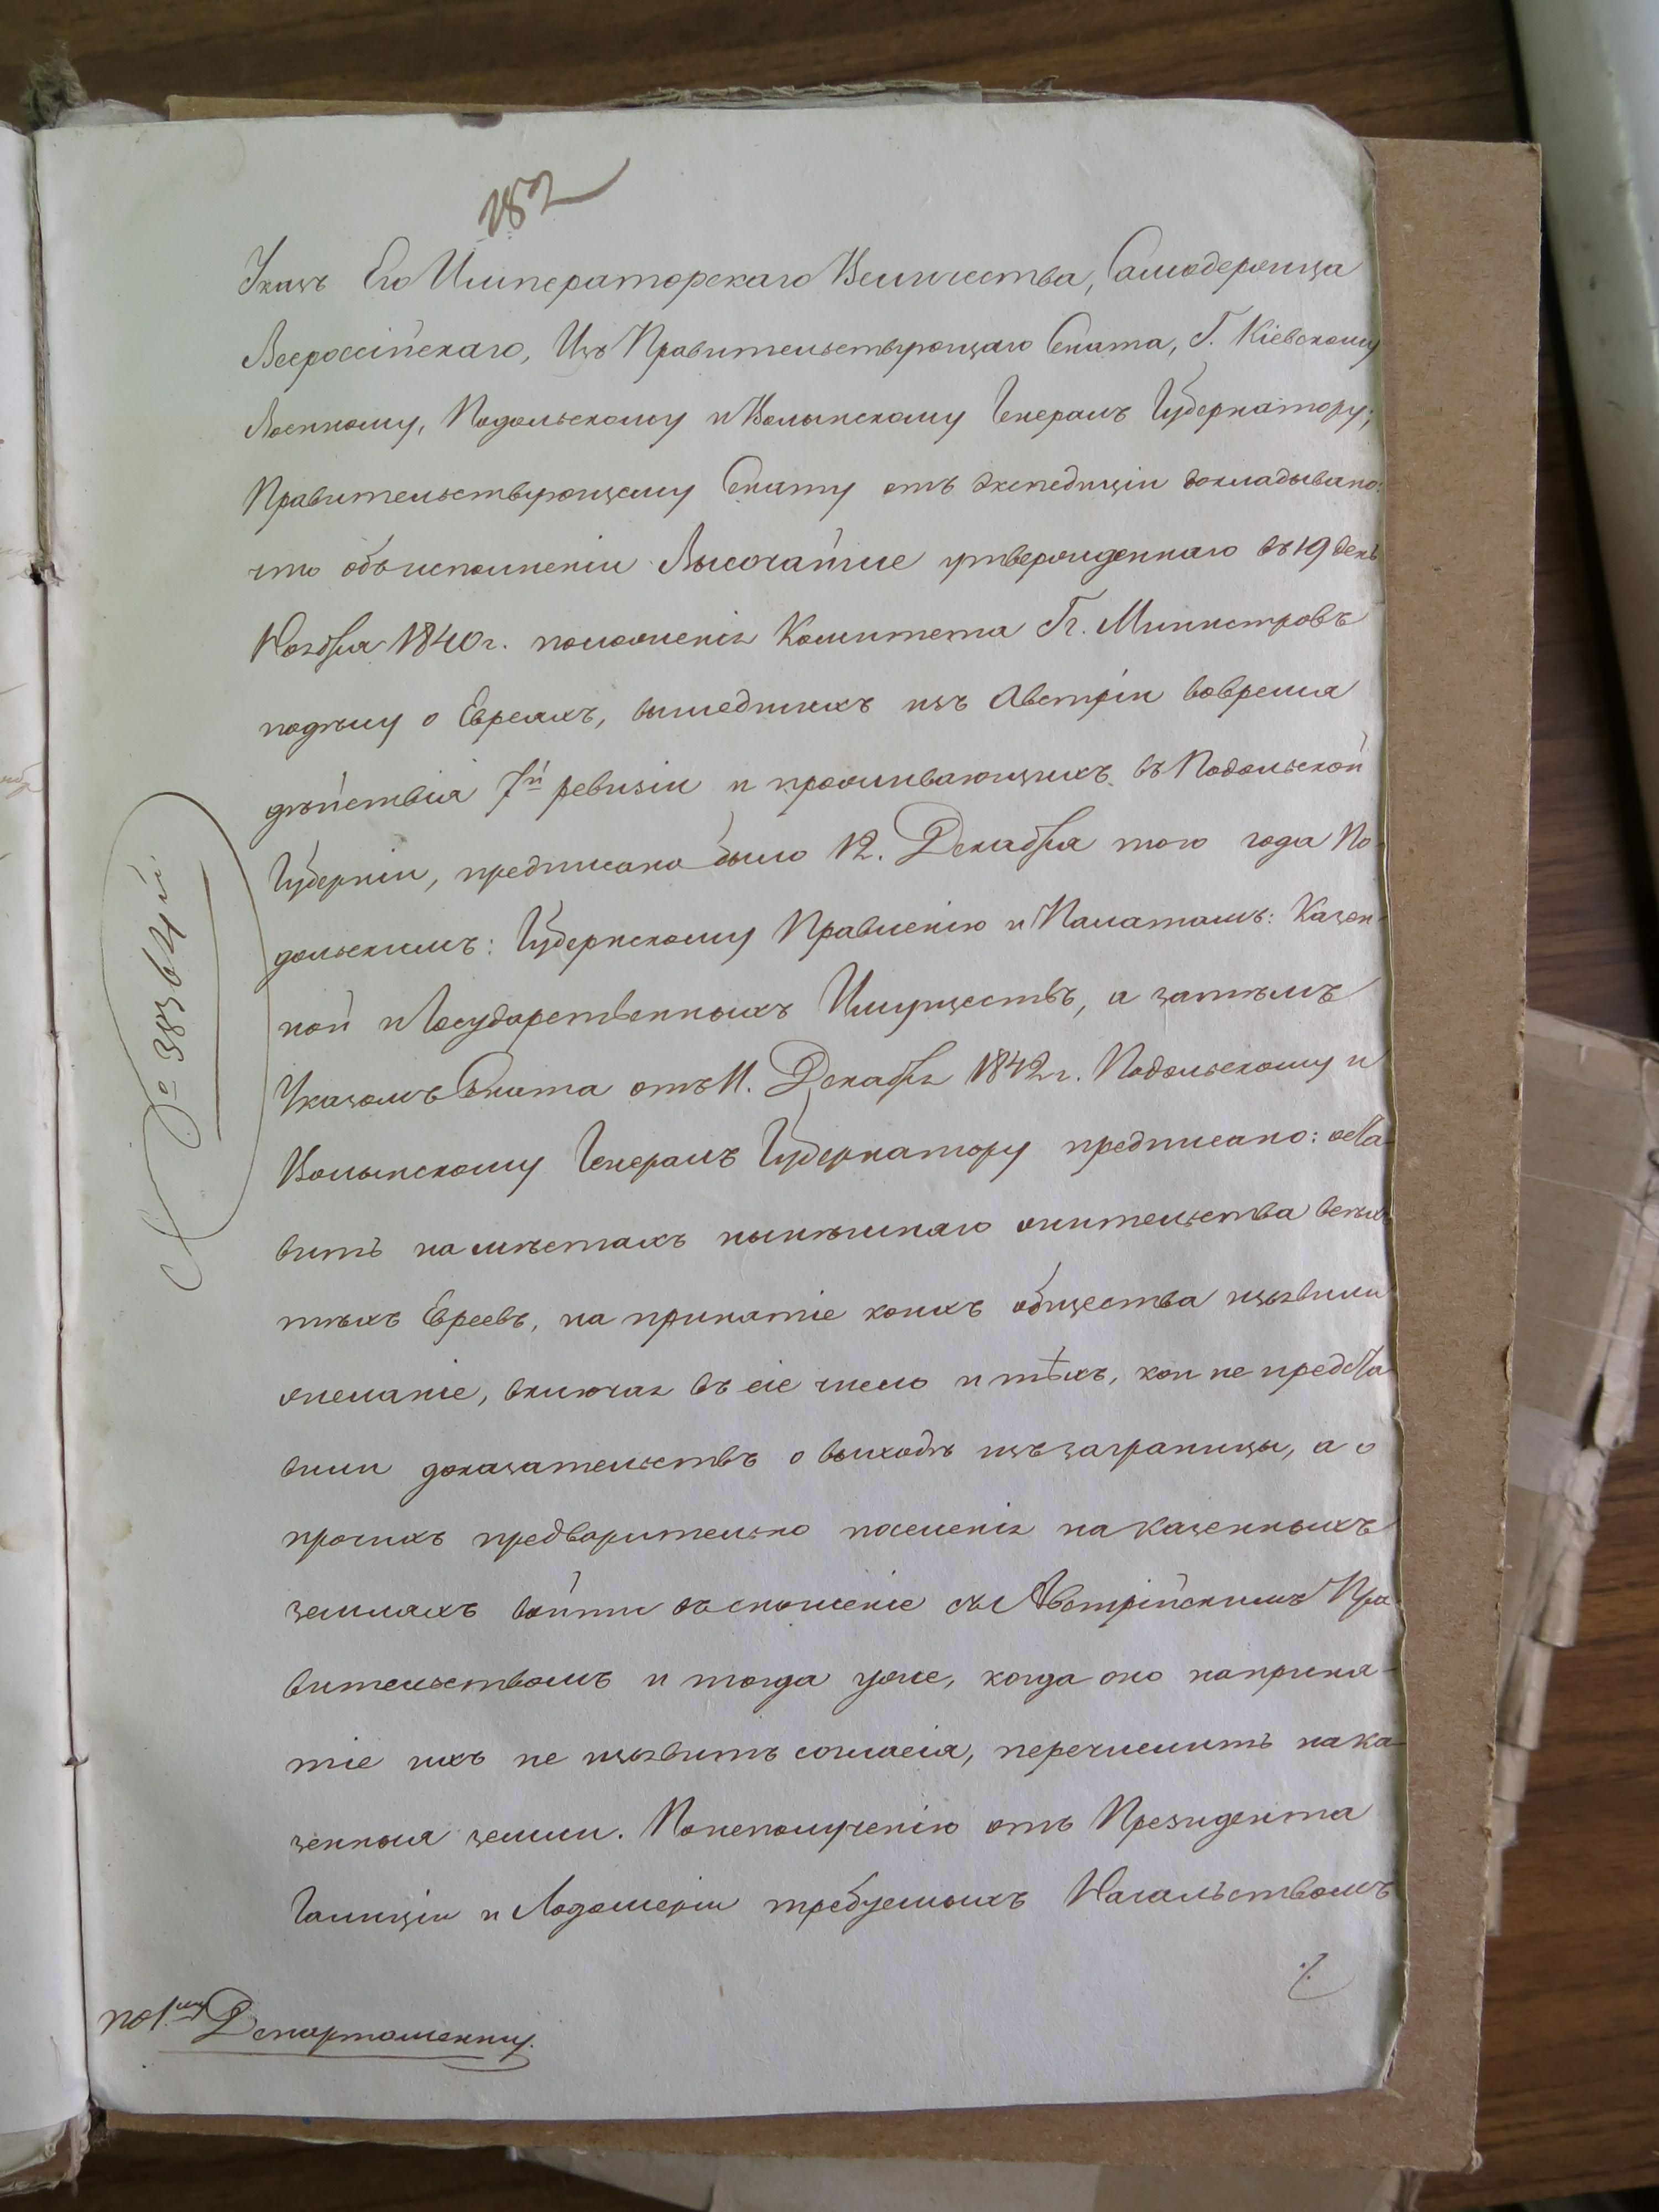 182
Указъ Его Императорскаго Величества, Самодержца
Всероссійскаго, Изъ Правительствующаго Сената, Г. Кіевскому
Военному, Подольскому и Волынскому Генералъ Губернатору;
Правительствующему Сенату отъ экспедиціи докладывано:
что объ исполненіи Высочайше утвержденнаго въ 19 день
Ноября 1840 г. положенія Комитета Гг. Министровъ
по дѣлу о Евреяхъ, вышедшихъ изъ Австріи вовремя
дѣйствія 7й ревизіи и проживающихъ въ Подольской
Губерніи, предписано было 12. Декабря того года По-
дольскимъ: Губернскому Правленію и Палатамъ: Казен-
ной и Государственныхъ Имуществъ, а затѣмъ
Указомъ Сената отъ 11. Декабря 1842 г. Подольскому и
Волынскому Генералъ Губернатору предписано: оста-
вить на мѣстахъ нынѣшняго жительства всѣхъ
тѣхъ Евреевъ, на принятіе коихъ общества изъявили
желаніе, включая въ сіе число и тѣхъ, кои не предста-
вили доказательствъ о выходѣ изъ заграницы, а о
прочихъ предварительно поселенія на казенныхъ
земляхъ войти въ сношеніе съ Австрійскимъ Пра-
вительствомъ и тогда уже, когда оно на приня-
тіе ихъ не изъявитъ согласія, перечислить на ка-
зенныя земли. По неполученію отъ Президента
Галиціи и Лодомеріи требуемыхъ Начальствомъ
№ 38364й.
по 1му Департаменту.